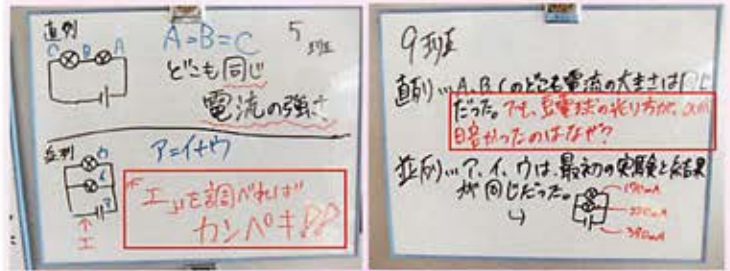 直列
C B A
A=B=C
5班
どこも同じ
電流の強さ
並列
ア=イ+ウ
エ
"エ"を調べれば
カンペキ
9班
直列…A、B、Cのどこも電流の大きさは同じ
だった。でも、豆電球の光り方が、
暗かったのはなぜ?
並列…ア、イ、ウは、最初の実験と結果
が同じだった。
190mA
200mA
390mA